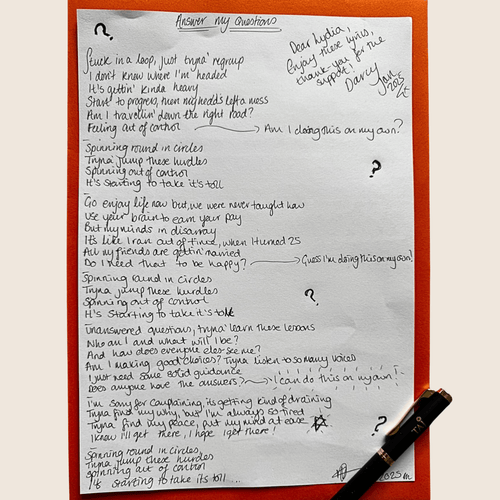 Answer My Questions
Dear Lydia,
Enjoy these lyrics,
thank-you for the
support!
Darcy
Jan
2025
?
Stuck in a loop, just tryna' regroup
I don't know where I'm headed
It's gettin' kinda heavy
Start to progress, then my heads left a mess
Am I travellin' down the right road?
Feeling out of control → Am I doing this on my own?
Spinning round in circles
Tryna' jump these hurdles
?
Spinning out of control
It's starting to take it's toll
Go enjoy life now but, we were never taught how
Use your brain to earn your pay
But my minds in disarray
It's like I ran out of time, when I turned 25
All my friends are gettin' married
Do I need that to be happy? → Guess I'm doing this on my own!
Spinning round in circles
Tryna jump these hurdles
?
Spinning out of control
It's starting to take it's toll
Unanswered questions, tryna' learn these lessons
Who am I and what will I be?
And how does everyone eles see me?
Am I making good choices? Tryna listen to so many voices
I just need some solid guidance
Does anyone have the answers? → I can do this on my own!
I'm sorry for complaining, its getting kind of draining
Tryna find my why, but I'm always so tired
Tryna' find my peace, put my mind at ease
?
I know I'll get there, I hope I get there!
Spinning round in circles,
Tryna jump these hurdles
Spinning out of control
It's starting to take it's toll...
2025